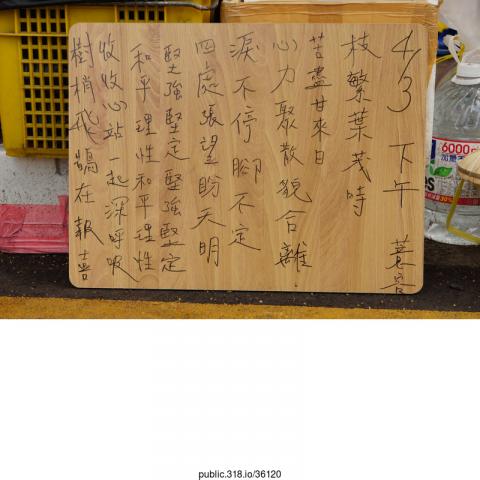 4/3 下午
枝繁葉茂時
苦盡甘來日
心力聚散貌合離
淚不停腳不定
四處張望盼天明
堅強堅定堅強堅定
和平理性和平理性
收收心站一起深呼吸
樹梢飛鵠在報喜
6000
public.318.io/36120